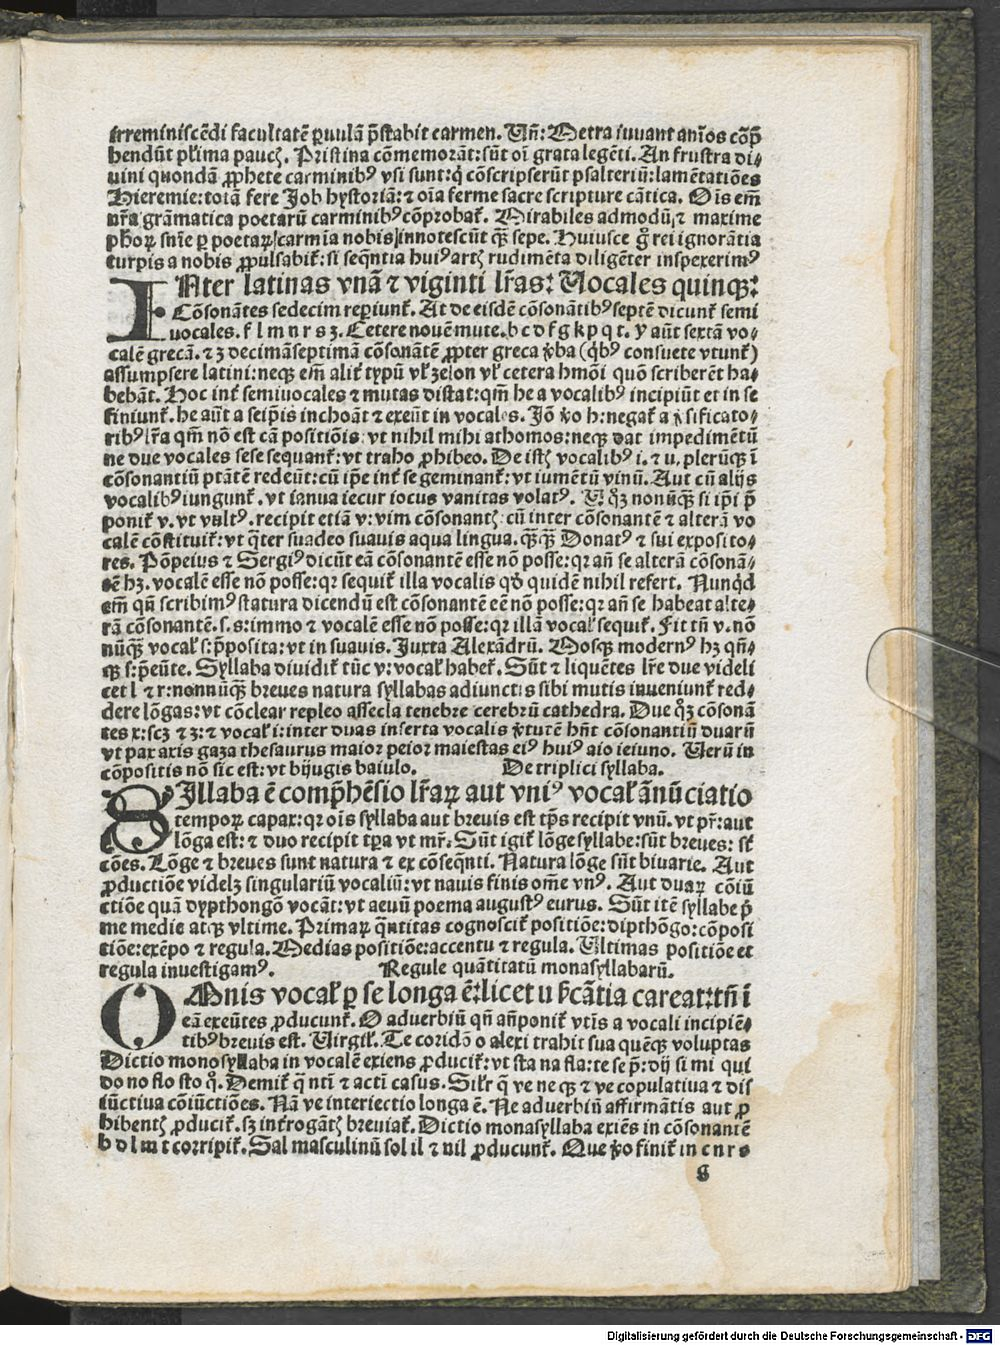 irreminiscēdi facultatē ꝑuulā p̄stabit carmen. Uñ: Metra iuuant aīos cōp̄
hendūt pl̄ima paucꝭ. Pristina cōmemorāt: sūt oī grata legēti. An frustra di⸗
uini quondā ꝓphete carminibꝰ vsi sunt: q̇ cōscripserūt psalteriū: lamētatiōes
Hieremie: totā fere Job hystoriā: ⁊ oīa ferme sacre scripture cātica. Oīs em̄
nr̄a grāmatica poetarū carminibꝰ cōprobat̄. Mirabiles admodū ⁊ maxime
ph̄oꝝ snīe ꝑ poetaꝝ carmīa nobis innotescūt qꝫ̄ sepe. Huiusce g̊ rei ignorātia
turpis a nobis ꝓpulsabit̄: si seqn̄tia huiꝰ artꝭ rudimēta diligēter inspexerimꝰ
INter latinas vnā ⁊ viginti lr̄as: Uocales quinqꝫ:
Cōsonātes sedecim reꝑiunt̄. At de eisdē cōsonātibꝰ septē dicunt̄ semi
uocales. f l m n r s z. Cetere nouē mute. b c d f g k p q t. y aūt sextā vo⸗
calē grecā. ⁊ z decimāseptimā cōsonātē ꝓpter greca v̄ba (q̇bꝰ consuete vtunt̄)
assumpsere latini: neqꝫ em̄ alit̄ typū vl̄ zelon vl̄ cetera hmōi quō scriberēt ha⸗
bebāt. Hoc int̄ semiuocales ⁊ mutas distat: qm̄ he a vocalibꝰ incipiūt et in se
finiunt̄. he aūt a seip̄is inchoāt ⁊ exeūt in vocales. Jō v̊o h: negat̄ a v̊sificato⸗
ribꝰ lr̄a qm̄ nō est cā positiōis: vt nihil mihi athomos: neqꝫ dat impedimētū
ne due vocales sese sequant̄: vt traho ꝓhibeo. De istꝭ vocalibꝰ i. ⁊ u. plerūqꝫ ī
cōsonantiū ptātē redeūt: cū ip̄e int̄ se geminant̄: vt iumētū vinū. Aut cū alijs
vocalibꝰ iungunt̄. vt ianua iecur iocus vanitas volatꝰ. U qꝫ nonūqꝫ̄ si ip̄i p̄
ponit̄ v. vt vultꝰ. recipit etiā v: vim cōsonantꝭ: cū inter cōsonantē ⁊ alterā vo
calē cōstituit̄: vt q̄ter suadeo suauis aqua lingua. qꝫ̄qꝫ̄ Donatꝰ ⁊ sui exposito⸗
res. Pōpeius ⁊ Sergiꝰ dicūt eā cōsonantē esse nō posse: qꝛ añ se alterā cōsonā⸗
tē hꝫ. vocalē esse nō posse: qꝛ sequit̄ illa vocalis qđ quidē nihil refert. Nunq̇d
em̄ qn̄ scribimꝰ statura dicendū est cōsonantē eē nō posse: qꝛ añ se habeat alte⸗
rā cōsonantē. s. s: immo ⁊ vocalē esse nō posse: qꝛ illā vocal̄ sequit̄. Fit tn̄ v. nō
nūqꝫ̄ vocal̄ s: p̄posita: vt in suauis. Juxta Alexādrū. Mosqꝫ modernꝰ hꝫ qn̄⸗
qꝫ s: p̄eūte. Syllaba diuidit̄ tūc v: vocal̄ habet̄. Sūt ⁊ liquētes lr̄e due videli
cet l ⁊ r: nonnūqꝫ̄ breues natura syllabas adiunctis sibi mutis inueniunt̄ red⸗
dere lōgas: vt cōclear repleo assecla tenebre cerebrū cathedra. Due qꝫ cōsonā
tes x: scꝫ ⁊ z: ⁊ vocal̄ i: inter duas inserta vocalis v̊tutē hn̄t cōsonantiū duarū
vt pax axis gaza thesaurus maior peior maiestas eiꝰ huiꝰ aio ieiuno. Uerū in
cōpositis nō sic est: vt bijugis baiulo. De triplici syllaba.
SIllaba ē comp̄hēsio lr̄aꝝ aut vniꝰ vocal̄ ānūciatio
tempoꝝ capax: qꝛ oīs syllaba aut breuis est tp̄s recipit vnū. vt pr̄: aut
lōga est: ⁊ duo recipit tp̄a vt mr̄: Sūt igit̄ lōge syllabe: sūt breues: st̄
cōes. Lōge ⁊ breues sunt natura ⁊ ex cōseqn̄ti. Natura lōge sūt biuarie. Aut
ꝓductiōe videlꝫ singulariū vocaliū: vt nauis finis ome vnꝰ. Aut duaꝝ cōiū
ctiōe quā dypthongō vocāt: vt aeuū poema augustꝰ eurus. Sūt itē syllabe p̄
me medie atqꝫ vltime. Primaꝝ q̄ntitas cognoscit̄ positiōe: dipthōgo: cōposi
tiōe: exēpo ⁊ regula. Medias positiōe: accentu ⁊ regula. Ultimas positiōe et
regula inuestigamꝰ. Regule quātitatū monasyllabarū.
OMnis vocal̄ ꝑ se longa ē: licet u hˢcātia careat: tn̄ ī
eā exeūtes ꝓducunt̄. O aduerbiū qn̄ añponit̄ vtīs a vocali incipiē⸗
tibꝰ breuis est. Uirgil̄. Te coridō o alexi trahit sua quēqꝫ voluptas
Dictio monosyllaba in vocalē exiens ꝓducit̄: vt sta na fla: te se p̄: dij si mi qui
do no flo sto q̊. Demit̄ q̄ ntī ⁊ actī casus. Sil̄r q̄ ve ne qꝫ ⁊ ve copulatiua ⁊ dis
iūctiua cōiūctiōes. Nā ve interiectio longa ē. Ne aduerbiū affirmātis aut ꝓ
hibentꝭ ꝓducit̄. sꝫ int̄rogātꝭ breuiat̄. Dictio monasyllaba exiēs in cōsonantē
b d l m t corripit̄. Sal masculinū sol il ⁊ nil ꝓducunt̄. Que v̊o finit̄ in c n r s